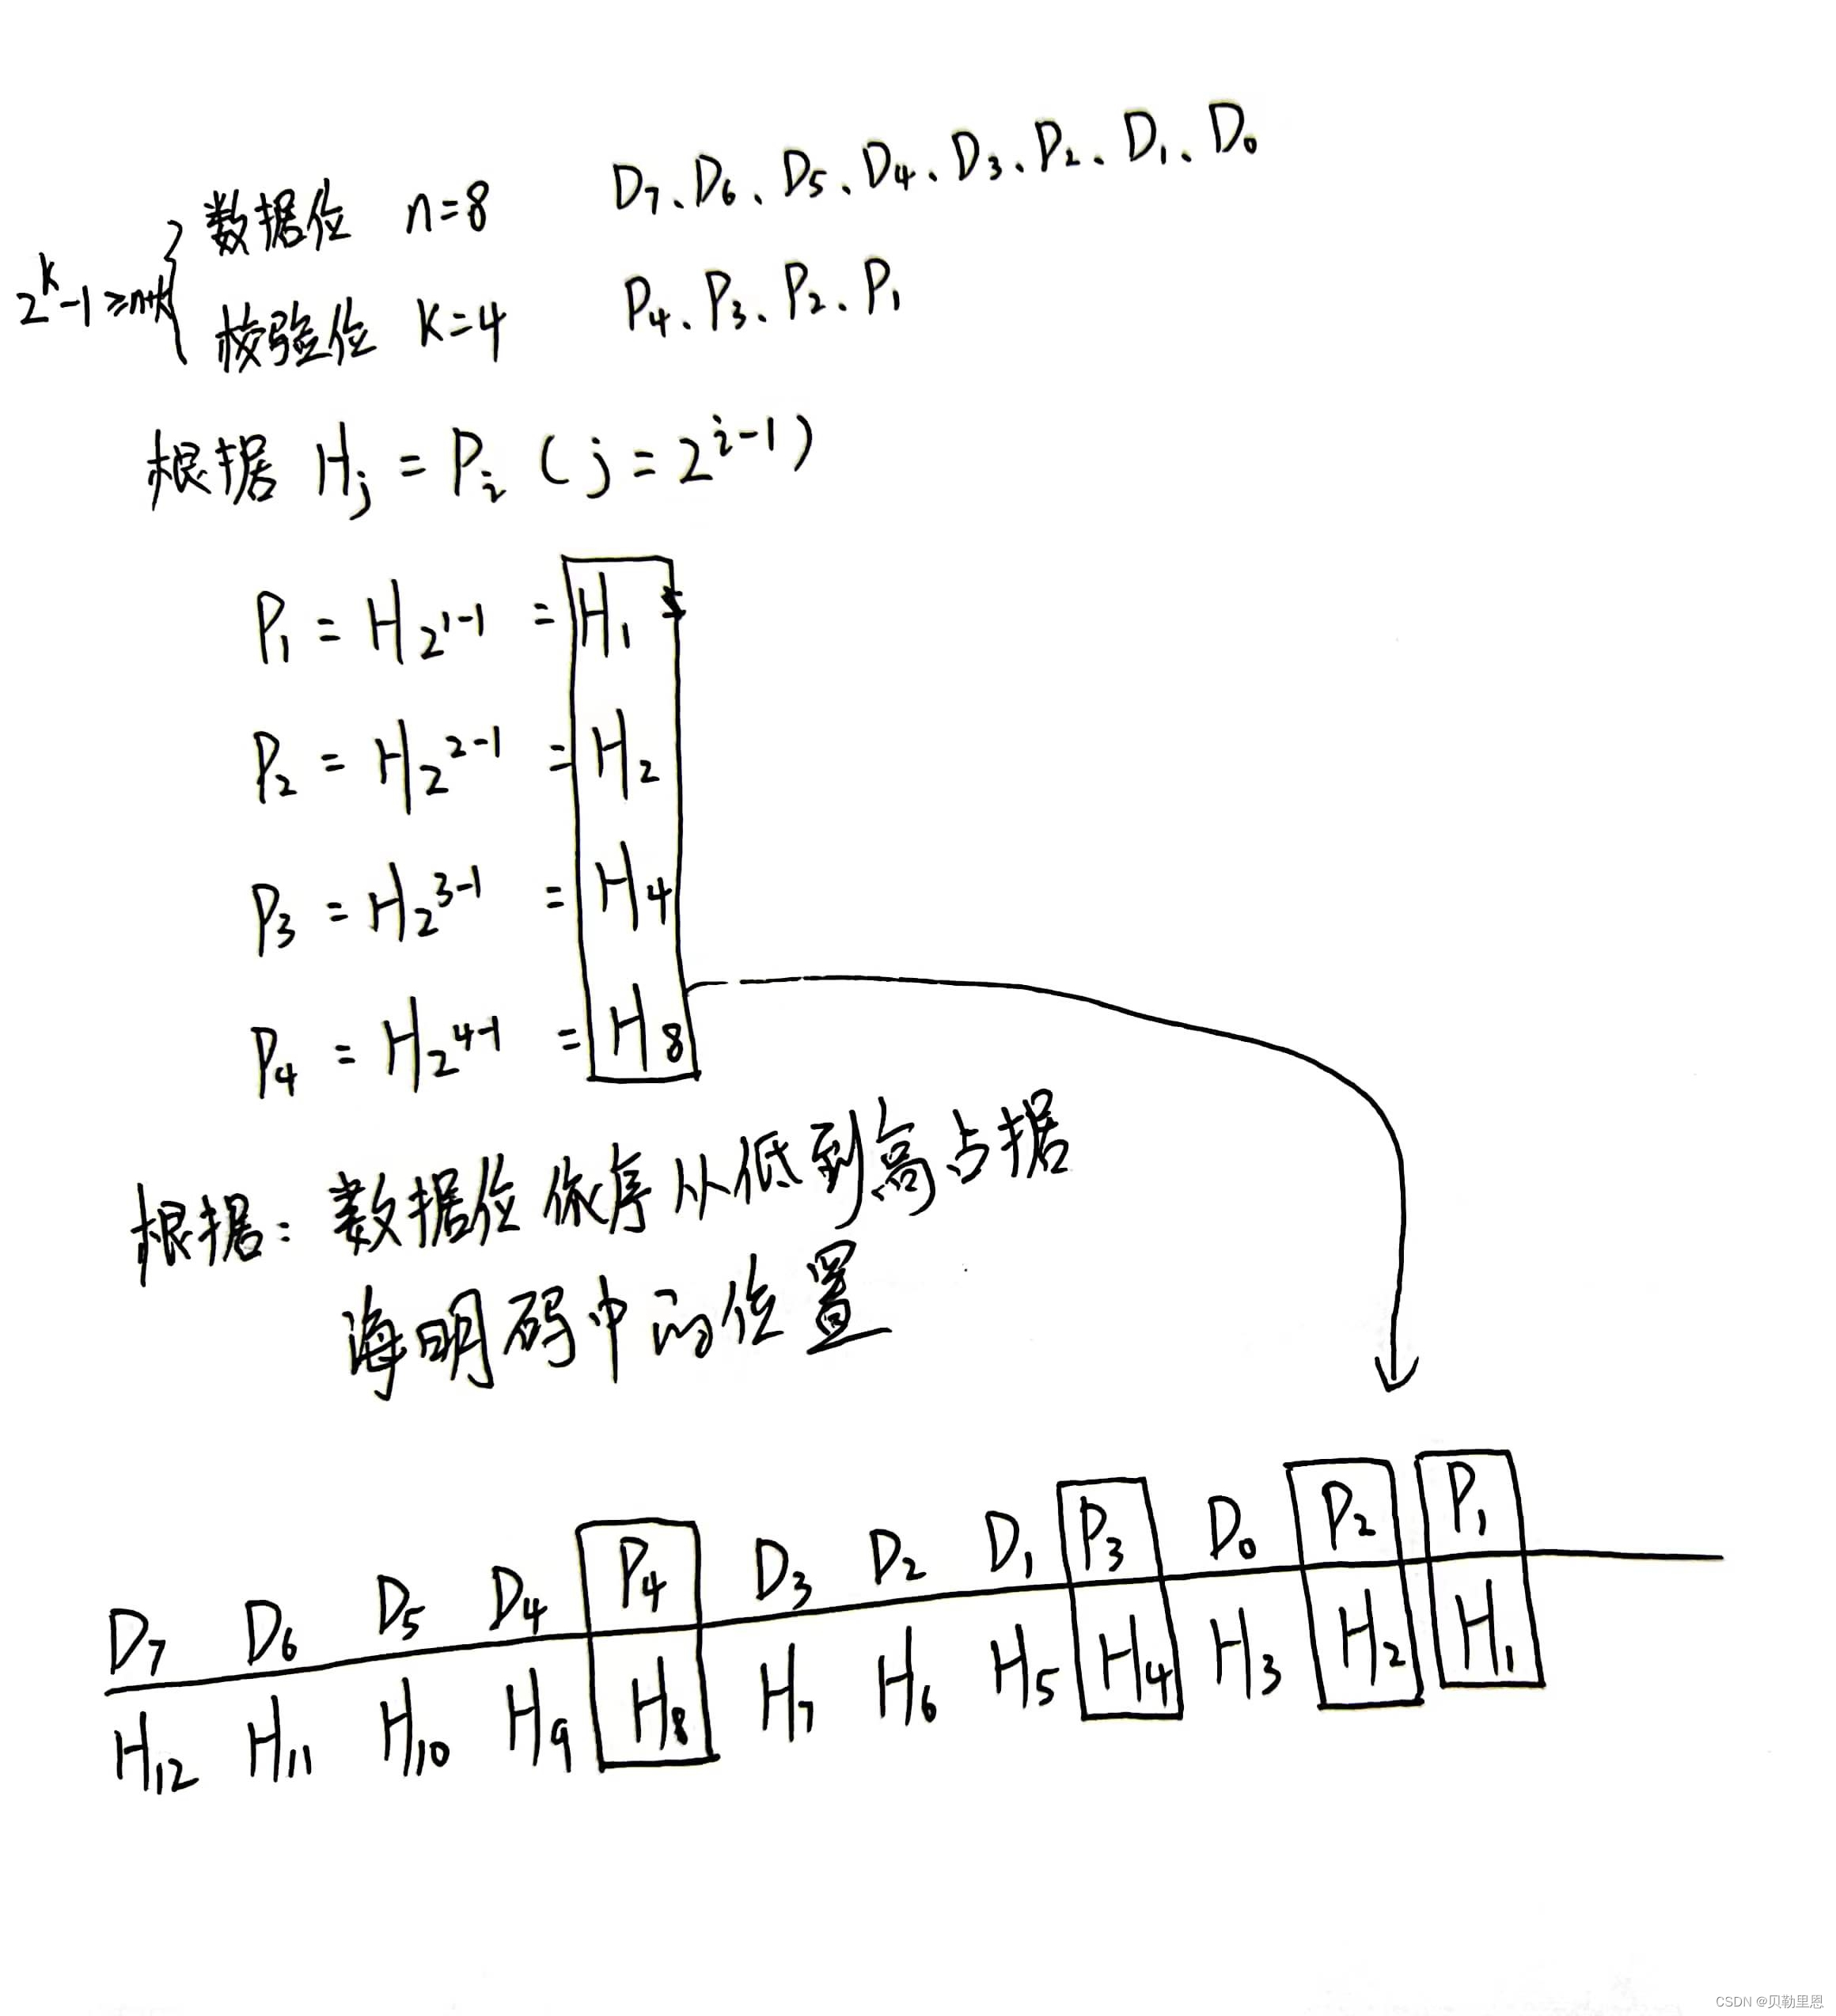 数据位 n=8 D₇、D₆、D₅、D₄、D₃、D₂、D₁、D₀
2^k-1≥n+k
校验位 K=4 P₄、P₃、P₂、P₁
根据 Hⱼ = Pᵢ (j=2^{i-1})
P₁ = H_{2^{1-1}} = H₁
P₂ = H_{2^{2-1}} = H₂
P₃ = H_{2^{3-1}} = H₄
P₄ = H_{2^{4-1}} = H₈
根据: 数据位依序从低到高占据
海明码中的位置
D₇ D₆ D₅ D₄ P₄ D₃ D₂ D₁ P₃ D₀ P₂ P₁
H₁₂ H₁₁ H₁₀ H₉ H₈ H₇ H₆ H₅ H₄ H₃ H₂ H₁
CSDN @贝勒里恩